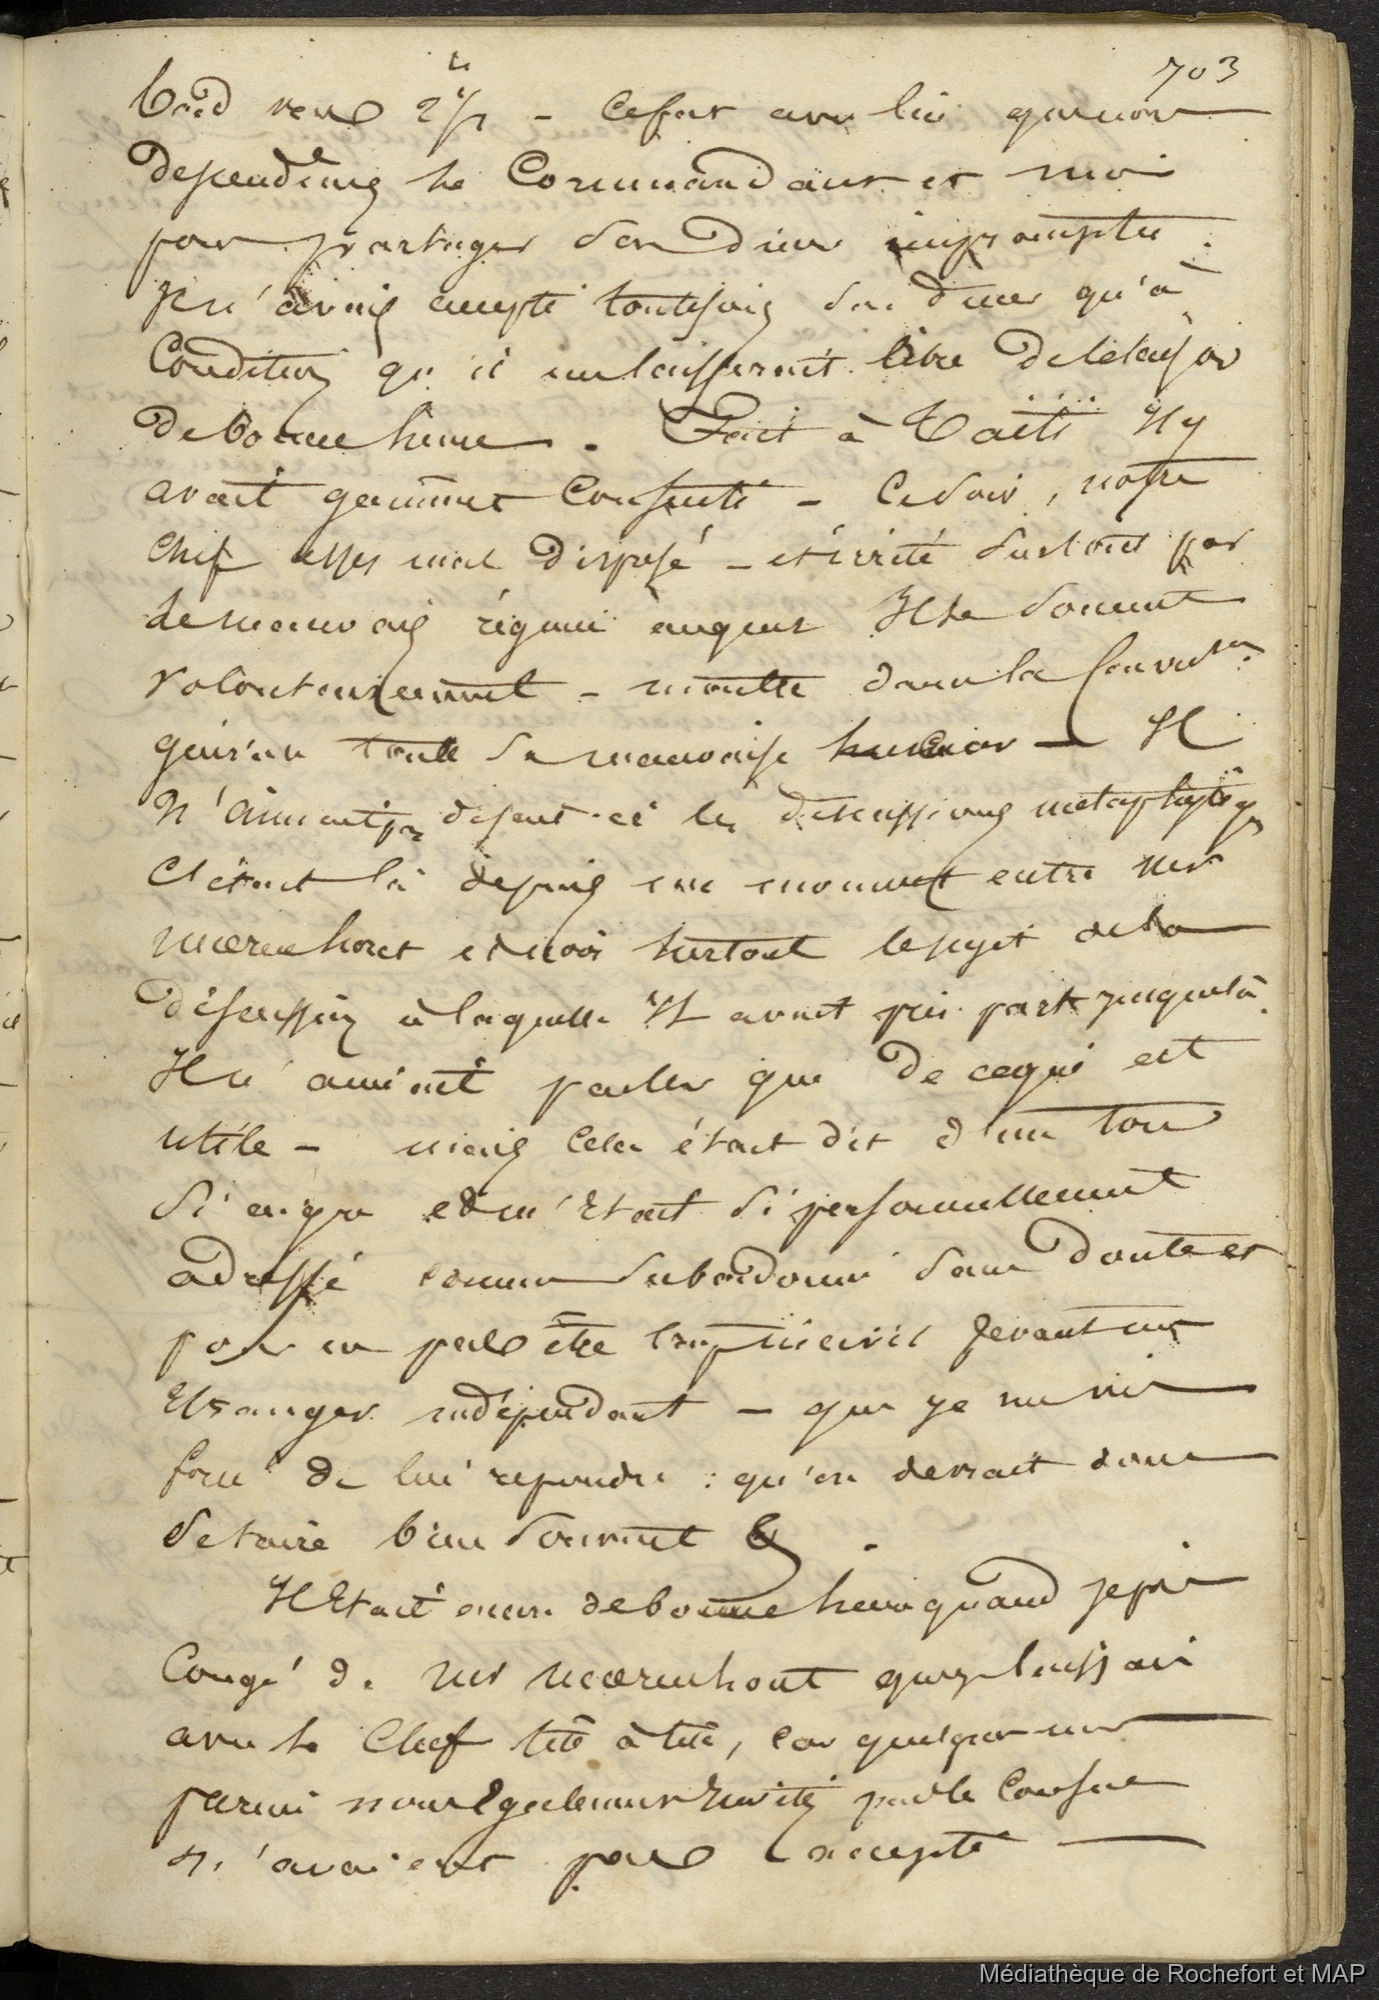 703
bord vers 2 h ½ - ce fut avec lui que nous
descendîmes le Commandant et moi
pour partager son diner impromptu.
Je n'avais accepté toutefois son diner qu'à
Condition qu'il me laisserait libre de le laisser
de bonne heure. Tout à Taïti Il y
avait gaiment Consenti - Ce soir, notre
chef assez mal disposé - et irrité surtout par
le mauvais régime auquel Il se soumet
volontairement - montra dans la
qu'eu toute sa mauvaise humeur - Il
N'aimait pas disait-il les discussions métaphysiques
C'était là depuis un moment entre Mr
Moerenhout et moi surtout le sujet de la
discussion à laquelle Il avait pris part jusque là.
Il n'aimait parler que de ce qui est
utile - mais Cela était dit d'un ton
si aigre et m'était si personnellement
adressé comme subordonné sans doute et
pour ne pas être trop incivil devant un
étranger indépendant - que je me vis
forcé de lui repondre : qu'on devrait donc
se taire bien souvent &.
Il était encore de bonne heure quand je pris
Congé de Mr Moerenhout que je laissai
avec le Chef tête à tête, car quelques uns
parmi nous également invités par le Consul
n'avaient pas accepté
Médiathèque de Rochefort et MAP